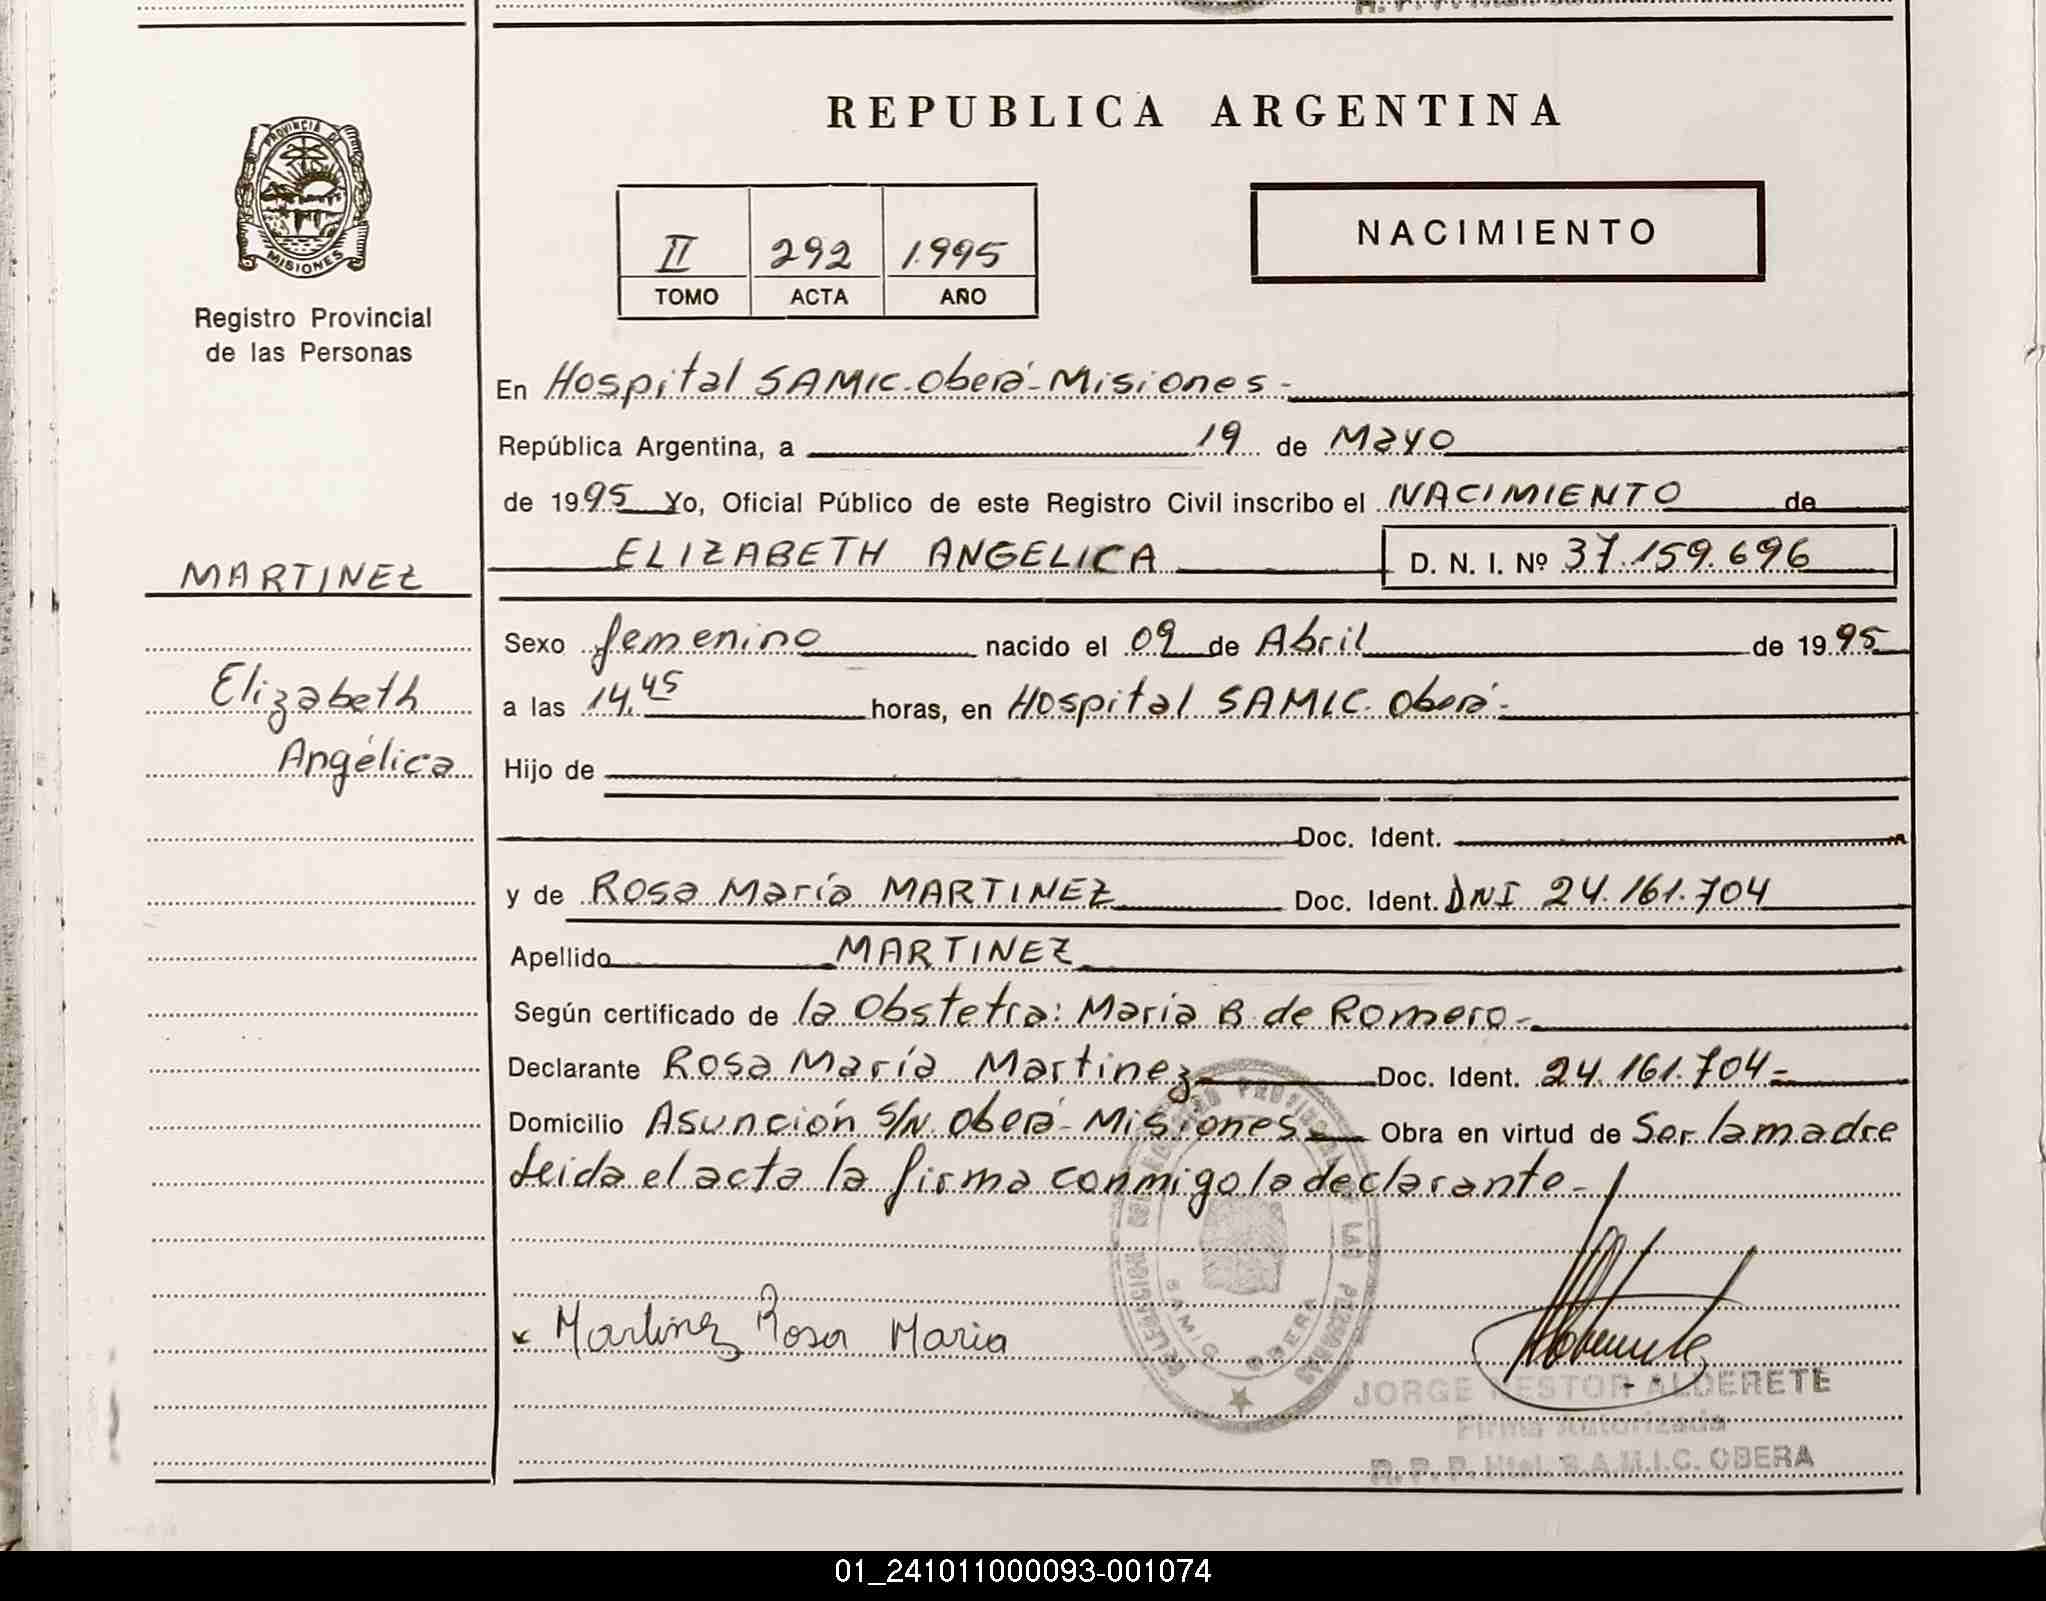 REPUBLICA ARGENTINA
PROVINCIA DE
MISIONES
Registro Provincial
de las Personas
II 292 1.995
TOMO ACTA AÑO
NACIMIENTO
En Hospital SAMIC. Oberá - Misiones -
República Argentina, a 19 de Mayo
de 1995 Yo, Oficial Público de este Registro Civil inscribo el NACIMIENTO de
ELIZABETH ANGELICA D. N. I. Nº 37.159.696
MARTINEZ
Elizabeth
Angélica
Sexo femenino nacido el 09 de Abril de 1995
a las 14.45 horas, en Hospital SAMIC. Oberá -
Hijo de
Doc. Ident.
y de Rosa María MARTINEZ Doc. Ident. DNI 24.161.704
Apellido MARTINEZ
Según certificado de la Obstetra: María B. de Romero -
Declarante Rosa María Martinez Doc. Ident. 24.161.704 -
Domicilio Asunción S/N. Oberá - Misiones Obra en virtud de Ser la madre
Leida el acta la firma conmigo la declarante -
Martinez Rosa Maria
SAMIC OBERA
JORGE NESTOR ALDERETE
Firma Autorizada
R. P. P. Htal. S.A.M.I.C. OBERA
01_241011000093-001074